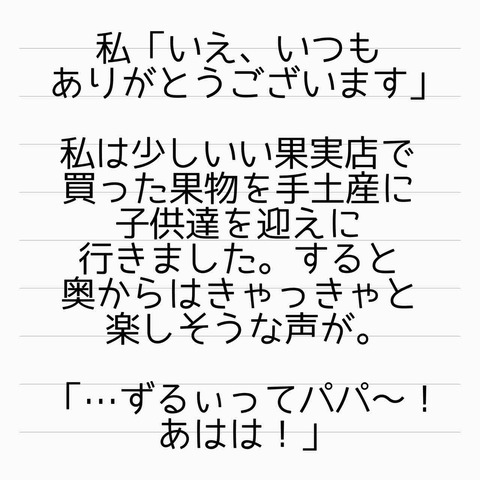 私「いえ、いつも
ありがとうございます」
私は少しいい果実店で
買った果物を手土産に
子供達を迎えに
行きました。すると
奥からはきゃっきゃと
楽しそうな声が。
「…ずるぃってパパ〜！
あはは！」